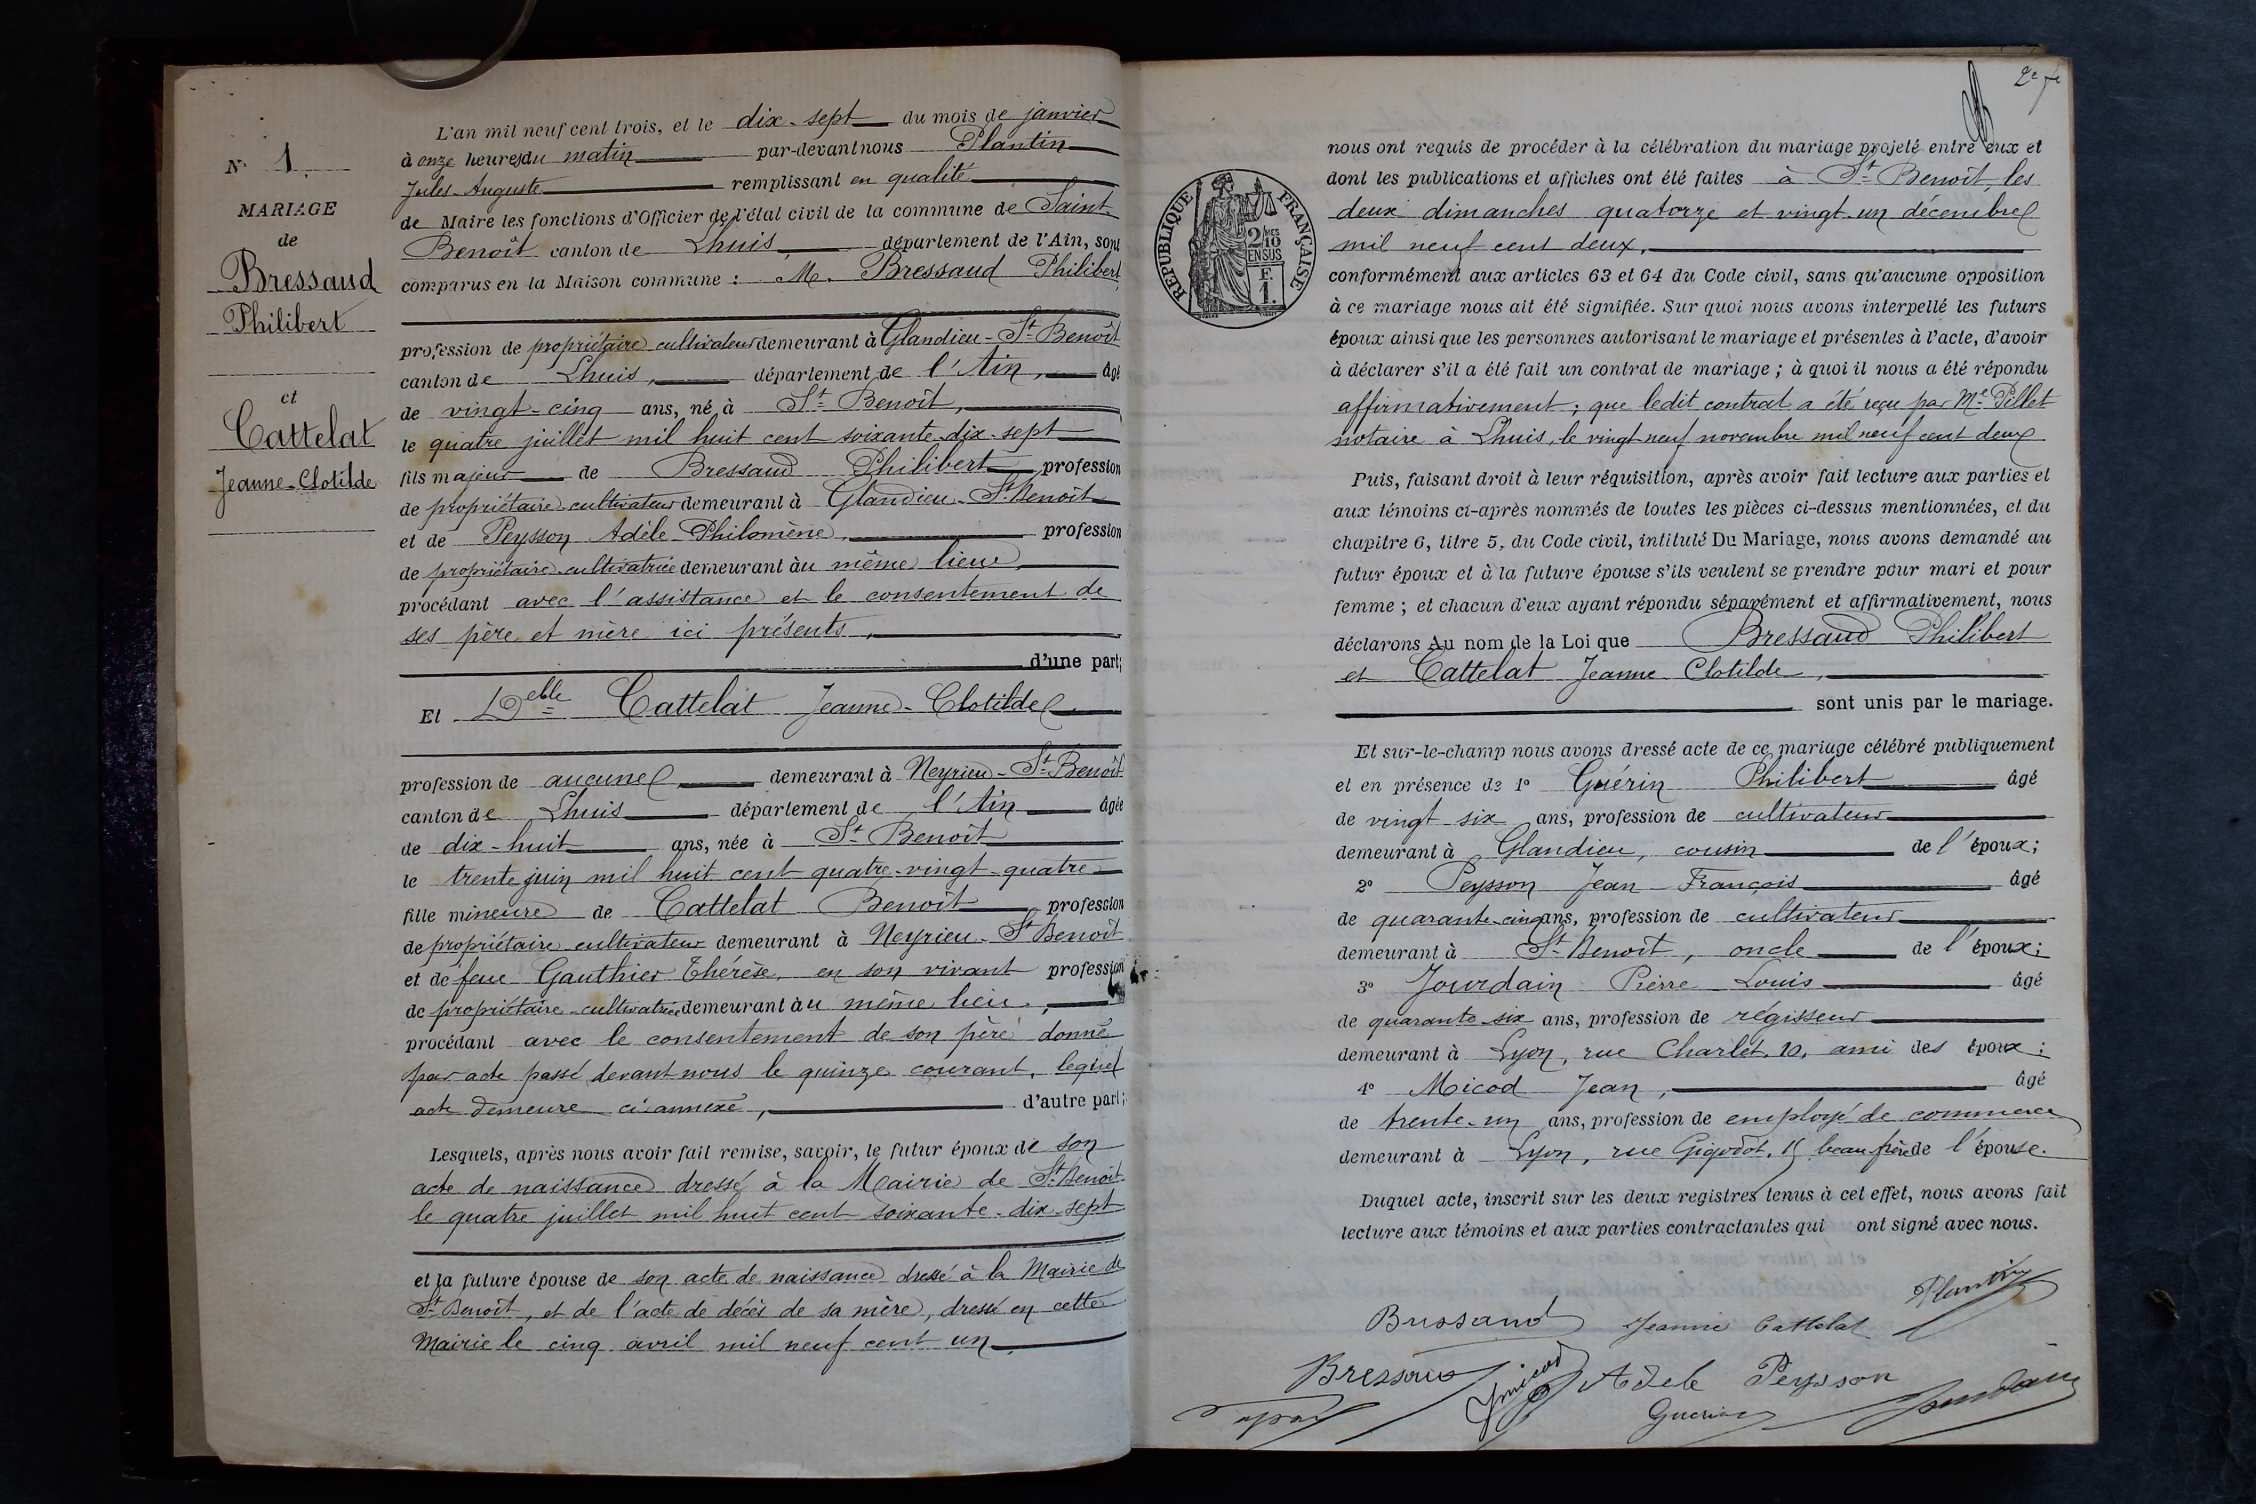 N° 1
MARIAGE
de
Bressaud
Philibert
et
Cattelat
Jeanne-Clotilde
L'an mil neuf cent trois, et le dix-sept du mois de janvier
à onze heures du matin par-devant nous Plantin
Jules-Auguste remplissant en qualité
de Maire les fonctions d'Officier de l'état civil de la commune de Saint-
Benoît canton de Lhuis département de l'Ain, sont
comparus en la Maison commune : M. Bressaud Philibert,
profession de propriétaire cultivateur demeurant à Glandieu-St-Benoît
canton de Lhuis, département de l'Ain, âgé
de vingt-cinq ans, né à St-Benoît,
le quatre juillet mil huit cent soixante-dix-sept
fils majeur de Bressaud Philibert profession
de propriétaire cultivateur demeurant à Glandieu-St-Benoît
et de Peysson Adèle-Philomène, profession
de propriétaire-cultivatrice demeurant au même lieu
procédant avec l'assistance et le consentement de
ses père et mère ici présents,
d'une part;
Et Delle Cattelat Jeanne-Clotilde
profession de aucune demeurant à Neyrieu-St-Benoît
canton de Lhuis département de l'Ain âgée
de dix-huit ans, née à St-Benoît
le trente juin mil huit cent quatre-vingt-quatre
fille mineure de Cattelat Benoît profession
de propriétaire cultivateur demeurant à Neyrieu-St-Benoît
et de feue Gauthier Thérèse, en son vivant profession
de propriétaire-cultivatrice demeurant au même lieu,
procédant avec le consentement de son père donné
par acte passé devant nous le quinze courant, lequel
acte demeure ci-annexé, d'autre part;
Lesquels, après nous avoir fait remise, savoir, le futur époux de son
acte de naissance dressé à la Mairie de St-Benoît
le quatre juillet mil huit cent soixante-dix-sept
et la future épouse de son acte de naissance dressé à la Mairie de
St-Benoît, et de l'acte de décès de sa mère, dressé en cette
Mairie le cinq avril mil neuf cent un.
REPUBLIQUE FRANÇAISE
2/10 MES
EN SUS
F.
1.
nous ont requis de procéder à la célébration du mariage projeté entre eux et
dont les publications et affiches ont été faites à St-Benoît, les
deux dimanches quatorze et vingt-un décembre
mil neuf cent deux,
conformément aux articles 63 et 64 du Code civil, sans qu'aucune opposition
à ce mariage nous ait été signifiée. Sur quoi nous avons interpellé les futurs
époux ainsi que les personnes autorisant le mariage et présentes à l'acte, d'avoir
à déclarer s'il a été fait un contrat de mariage ; à quoi il nous a été répondu
affirmativement ; que ledit contrat a été reçu par Me Pellet
notaire à Lhuis, le vingt neuf novembre mil neuf cent deux
Puis, faisant droit à leur réquisition, après avoir fait lecture aux parties et
aux témoins ci-après nommés de toutes les pièces ci-dessus mentionnées, et du
chapitre 6, titre 5, du Code civil, intitulé Du Mariage, nous avons demandé au
futur époux et à la future épouse s'ils veulent se prendre pour mari et pour
femme ; et chacun d'eux ayant répondu séparément et affirmativement, nous
déclarons Au nom de la Loi que Bressaud Philibert
et Cattelat Jeanne Clotilde,
sont unis par le mariage.
Et sur-le-champ nous avons dressé acte de ce mariage célébré publiquement
et en présence de 1° Guérin Philibert âgé
de vingt-six ans, profession de cultivateur
demeurant à Glandieu, cousin de l'époux;
2° Peysson Jean-François âgé
de quarante-cinq ans, profession de cultivateur
demeurant à St-Benoît, oncle de l'époux;
3° Jourdain Pierre-Louis âgé
de quarante-six ans, profession de régisseur
demeurant à Lyon, rue Charlet, 10, ami des époux;
4° Micod Jean, âgé
de trente-un ans, profession de employé de commerce
demeurant à Lyon, rue beau frère de l'épouse.
Duquel acte, inscrit sur les deux registres tenus à cet effet, nous avons fait
lecture aux témoins et aux parties contractantes qui ont signé avec nous.
Plantin
Bressaud Jeanne Cattelat
Bressaud Jmicod Adele Peysson
Guerin Jourdain